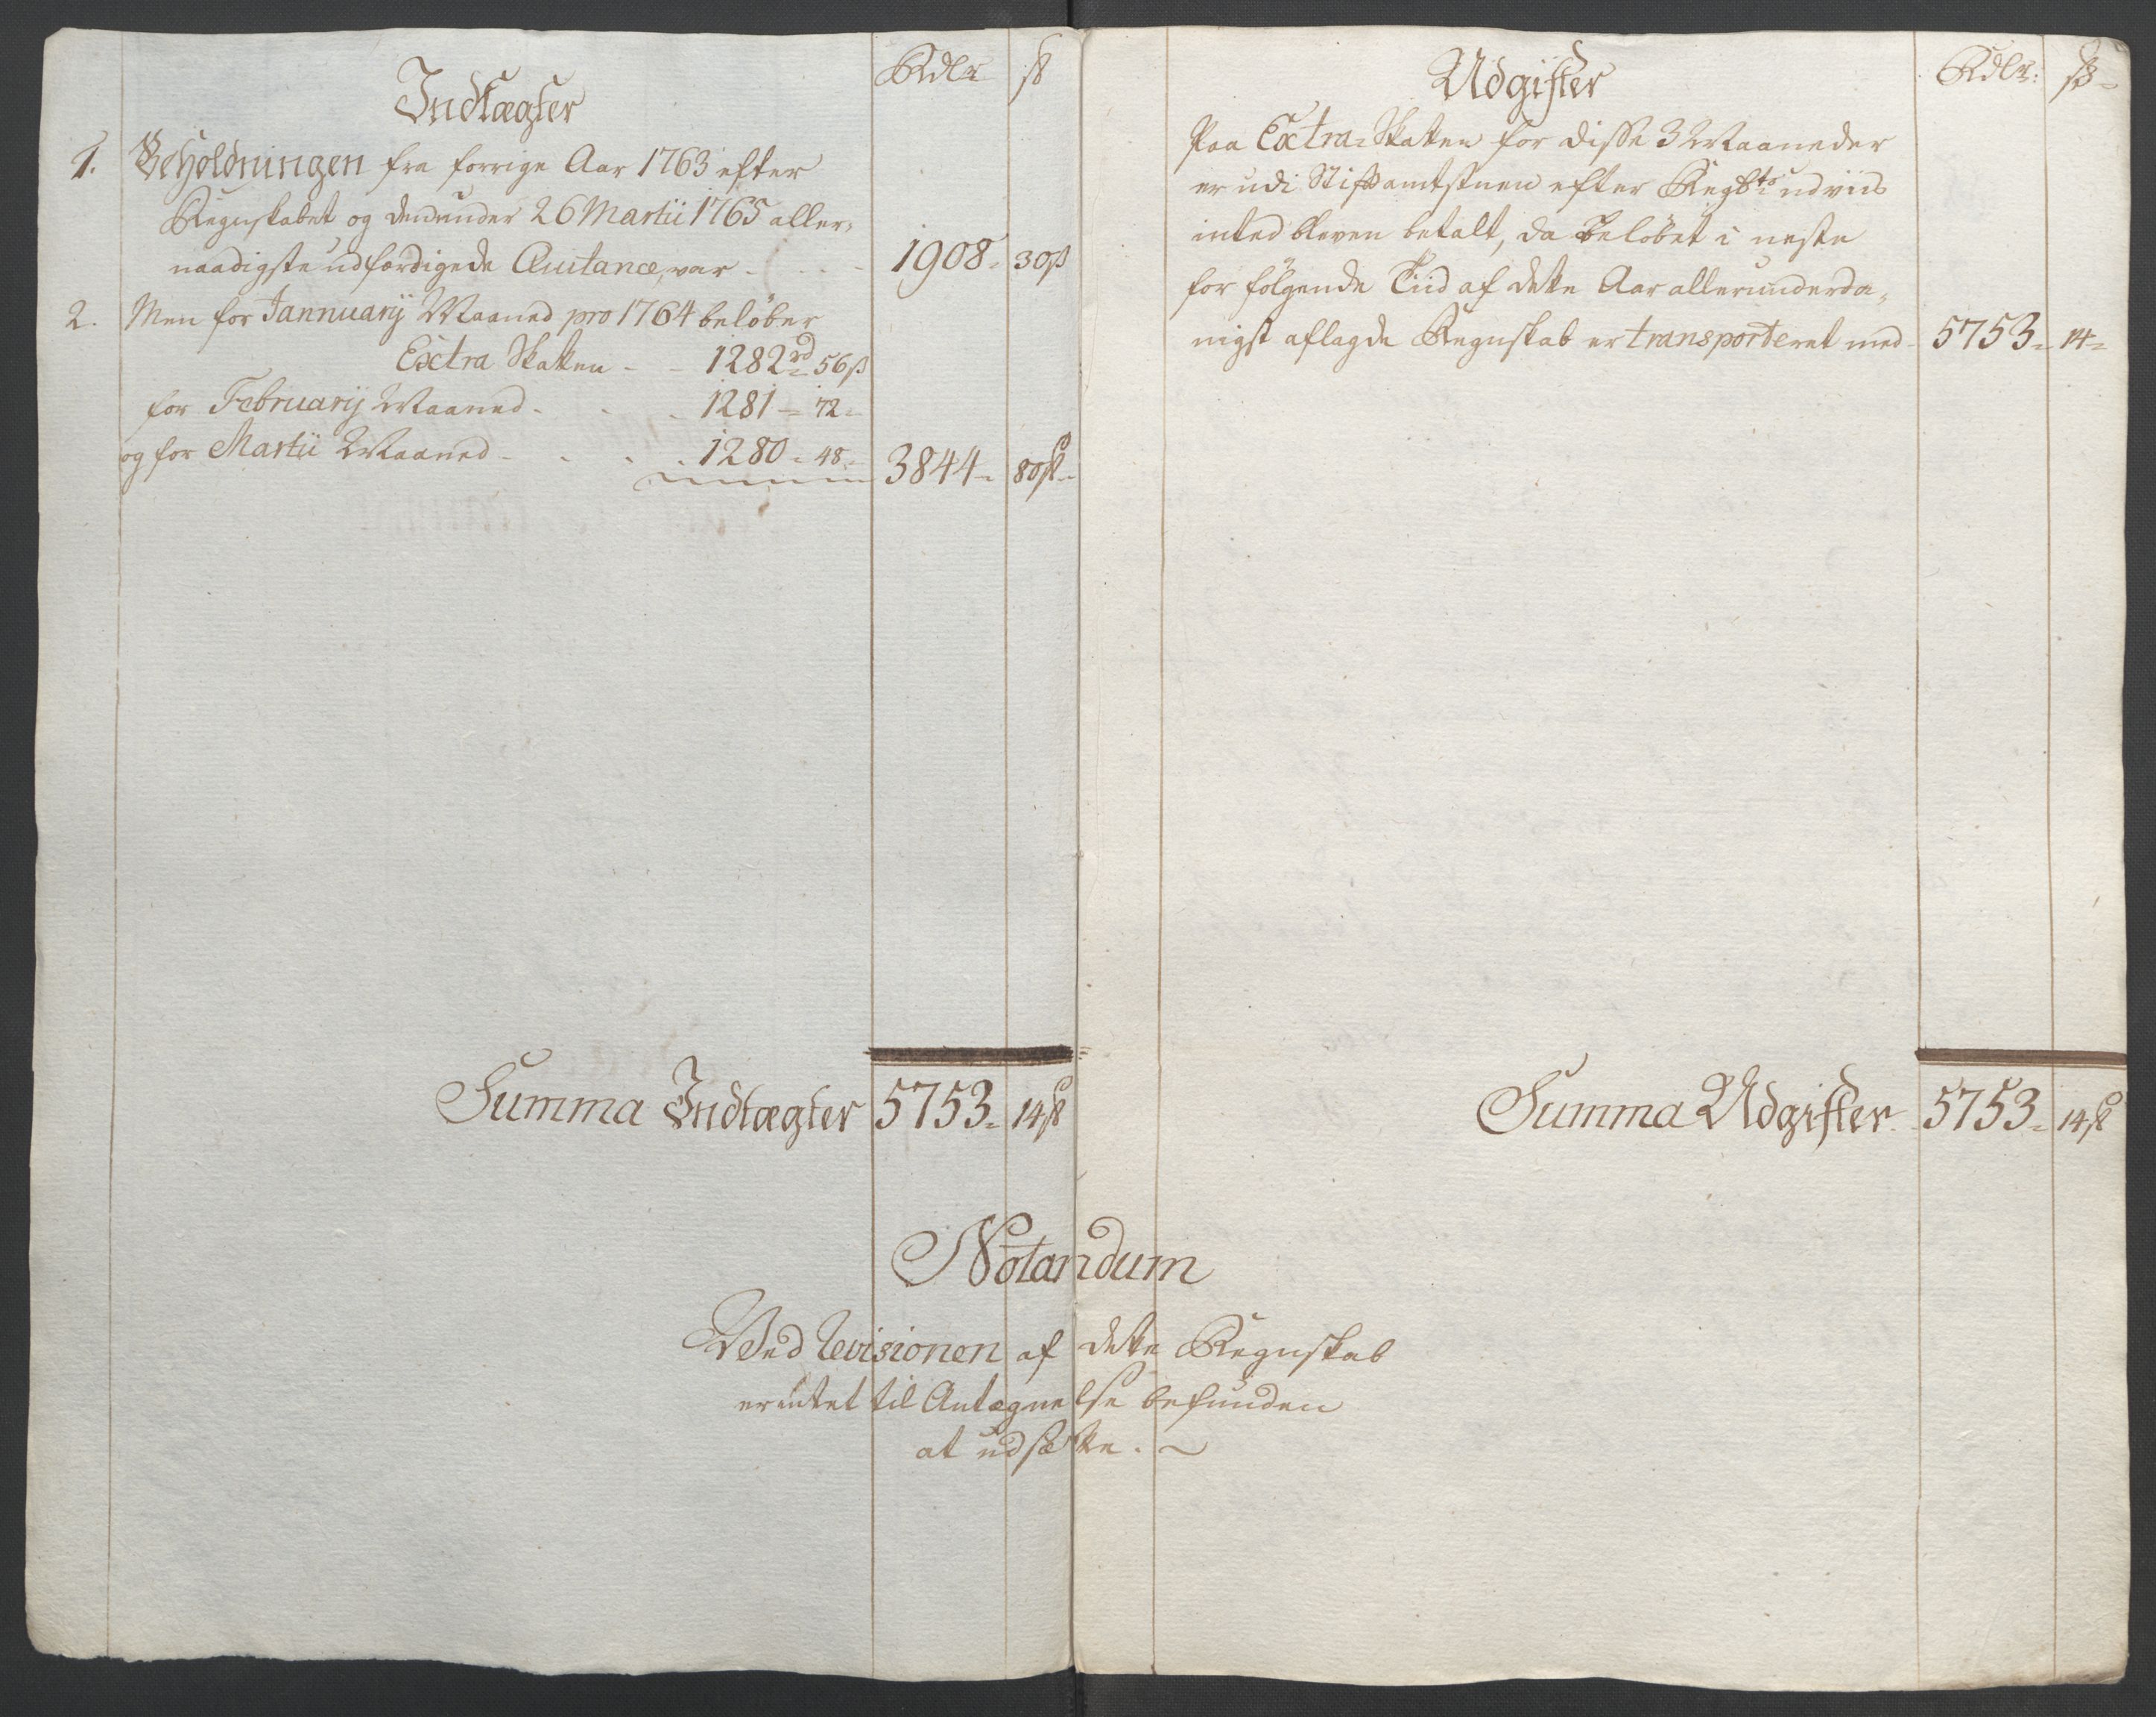 Indtægter
Rdlr ß
1. Beholdningen fra forrige Aar 1763 efter
Regnskabet og den under 26 Martii 1765 aller-
naadigste udfærdigede Qvitance, var - 1908. 30ß
2. Men for Jannuarij Maaned pro 1764 beløber
Extra Skatten - - 1282rd 56ß
for Februarij Maaned - - - 1281 - 72 -
og for Martii Maaned - - - 1280 - 48 - 3844 - 80ß
Summa Indtægter 5753 - 14ß
Udgifter
Rdlr: ß
Paa Extra-Skatten for disse 3 Maaneder
er udi Stiftamtstuen efter udviis
inted bleven betalt, da beløbet i neste
for følgende Tiid af dette Aar allerunderda-
nigst aflagde Regnskab er transporteret med - 5753 - 14 -
Summa Udgifter - 5753 - 14ß
Notandum
Ved Revisionen af dette Regnskab
er intet til Antegnelse befunden
at udsætte. ~